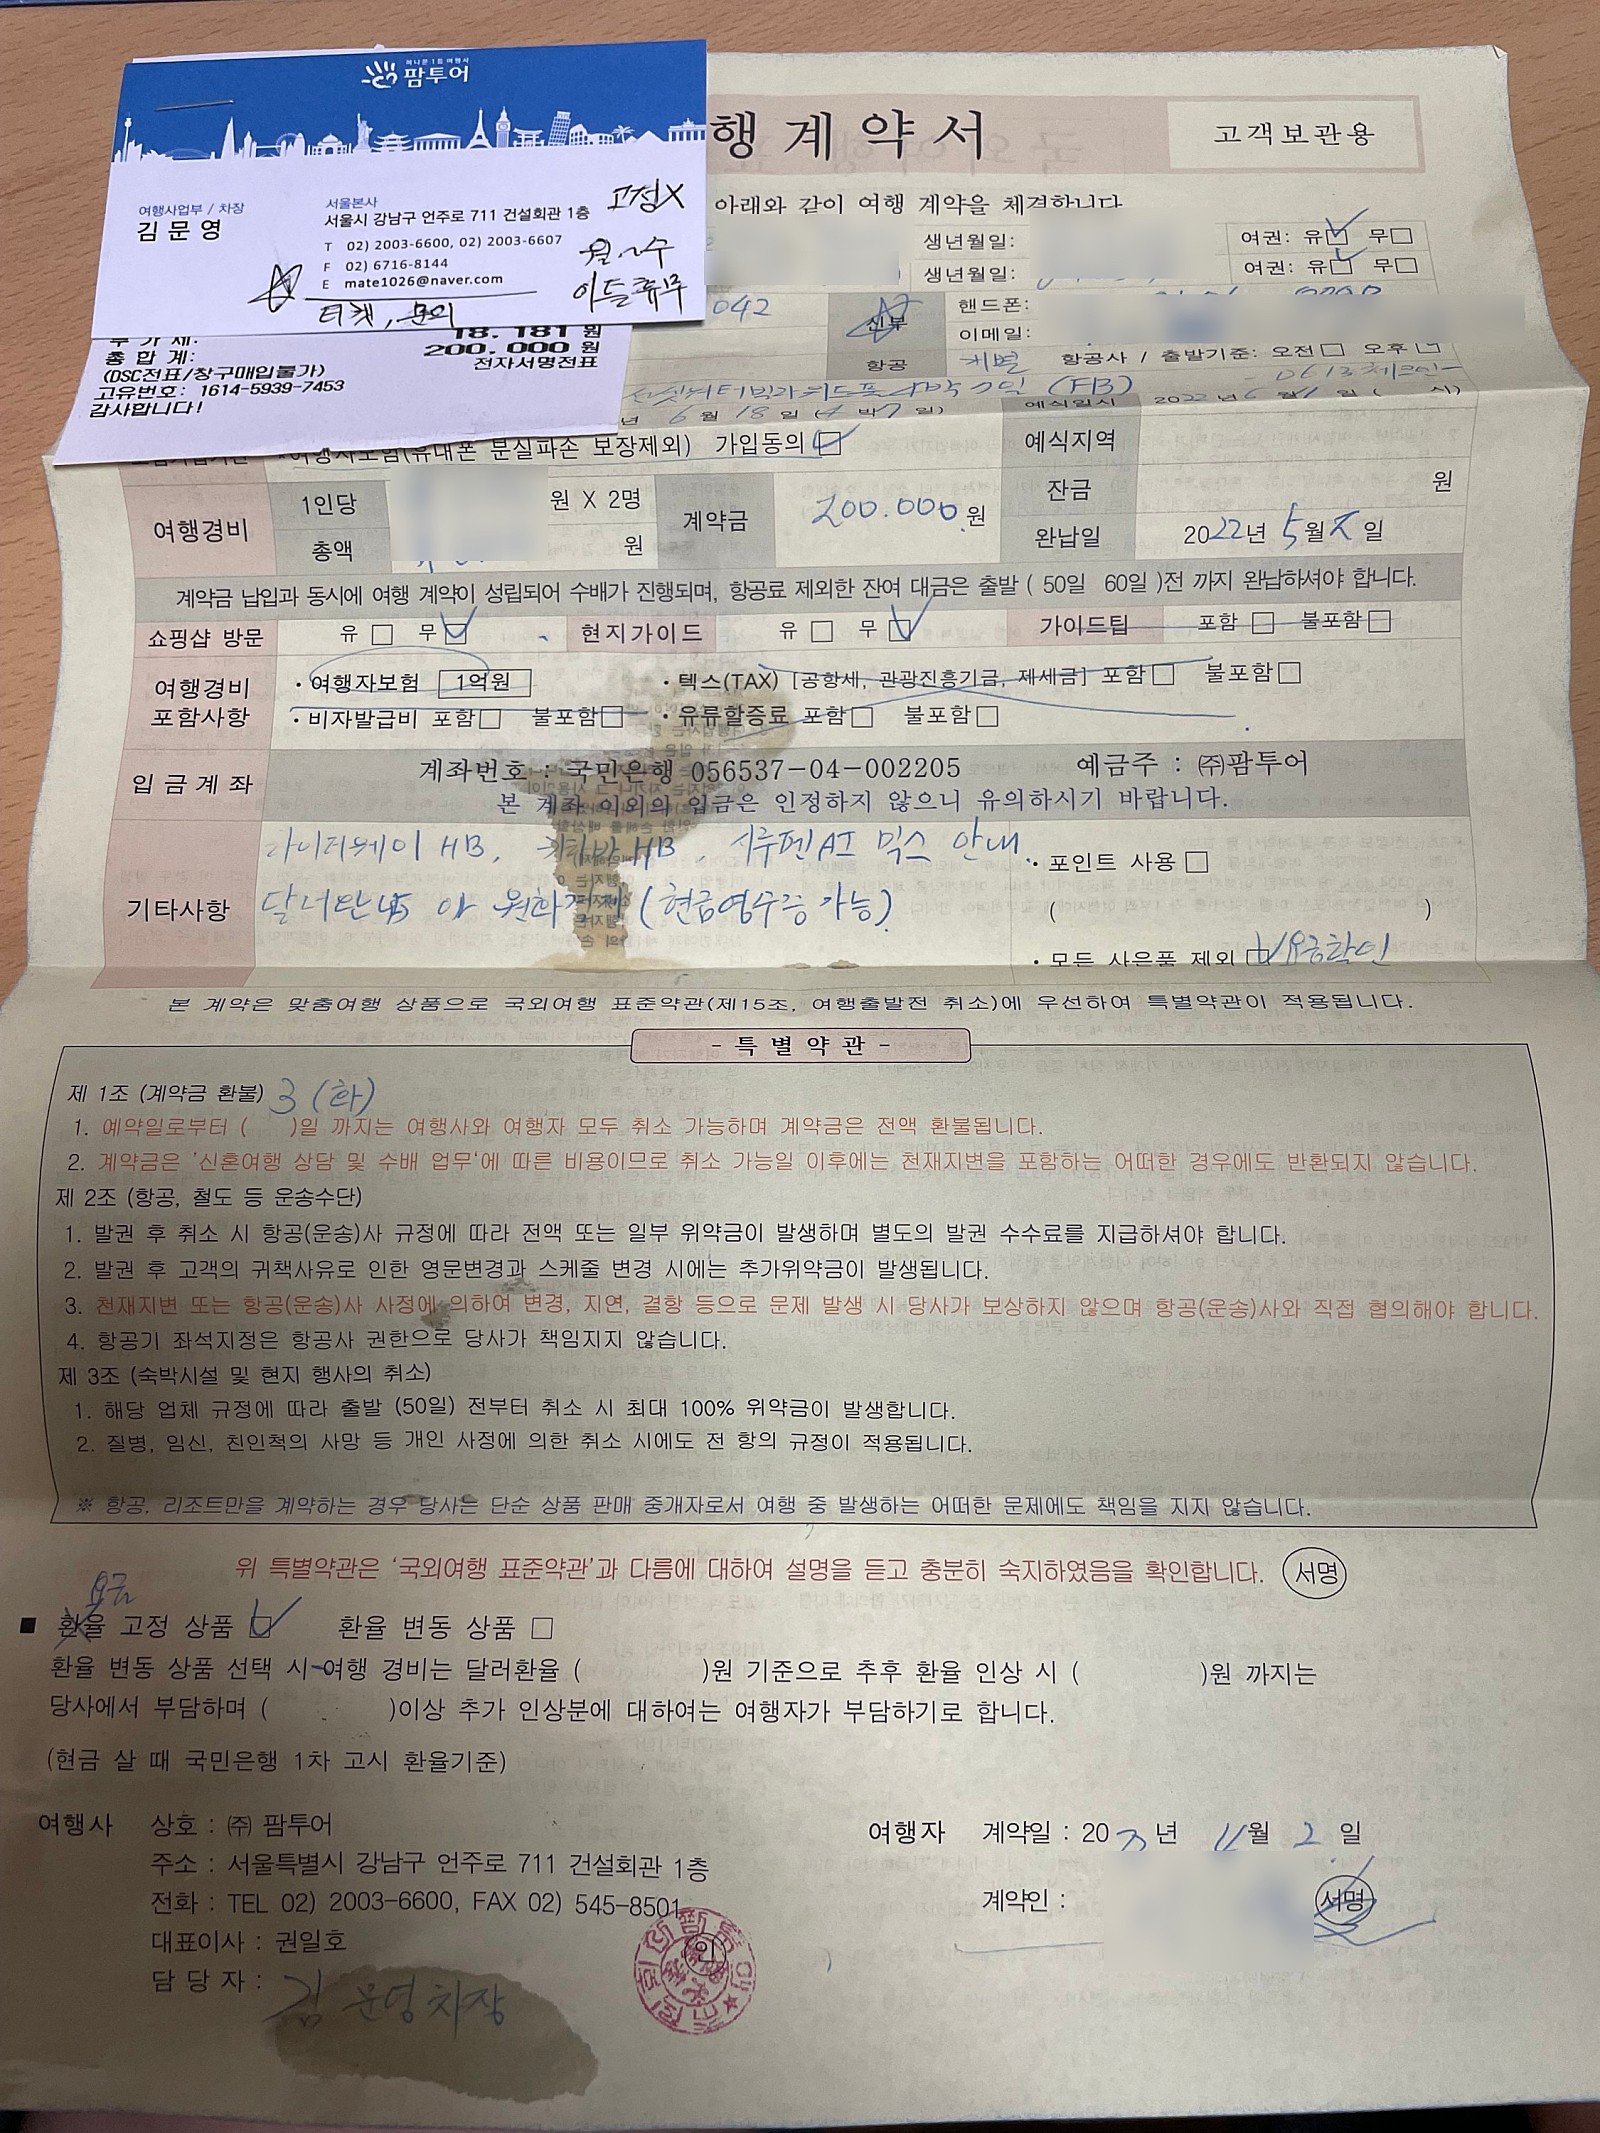 허니문 1등 여행사
팜투어
여행사업부 / 차장
김 문 영
서울본사
서울시 강남구 언주로 711 건설회관 1층
T 02) 2003-6600, 02) 2003-6607
F 02) 6716-8144
E mate1026@naver.com
고정X
월~수
이틀휴무
티켓, 문의
부 가 세: 18,181 원
총 합 계: 200,000 원
전자서명전표
(DSC전표/창구매입불가)
고유번호: 1614-5939-7453
감사합니다!
행 계 약 서
고객보관용
아래와 같이 여행 계약을 체결합니다
생년월일: 여권: 유☑ 무□
생년월일: 여권: 유☑ 무□
042 신부 핸드폰:
이메일:
항공 개별 항공사 / 출발기준: 오전□ 오후□
4박 7일 (FB)
년 6월 18일 (4 박 7 일) 예식일시 2022년 6월 11일 ( 시)
여행자보험(휴대폰 분실파손 보장제외) 가입동의 ☑ 예식지역
여행경비 1인당 원 X 2명 계약금 200.000 원 잔금 원
총액 원 완납일 2022년 5월 일
계약금 납입과 동시에 여행 계약이 성립되어 수배가 진행되며, 항공료 제외한 잔여 대금은 출발 ( 50일 60일 )전 까지 완납하셔야 합니다.
쇼핑샵 방문 유 □ 무 ☑ 현지가이드 유 □ 무 ☑ 가이드팁 포함 □ 불포함□
여행경비 포함사항 · 여행자보험 1억원 · 텍스(TAX) [공항세, 관광진흥기금, 제세금] 포함□ 불포함□
· 비자발급비 포함□ 불포함□ · 유류할증료 포함□ 불포함□
입금계좌 계좌번호 : 국민은행 056537-04-002205 예금주 : ㈜팜투어
본 계좌 이외의 입금은 인정하지 않으니 유의하시기 바랍니다.
기타사항 HB, HB, 믹스 안내.
원화결제 (현금영수증 가능)
· 포인트 사용 □
( )
· 모든 사은품 제외 ☑ 요금확인
본 계약은 맞춤여행 상품으로 국외여행 표준약관(제15조, 여행출발전 취소)에 우선하여 특별약관이 적용됩니다.
- 특 별 약 관 -
제 1조 (계약금 환불) 3 (화)
1. 예약일로부터 ( )일 까지는 여행사와 여행자 모두 취소 가능하며 계약금은 전액 환불됩니다.
2. 계약금은 '신혼여행 상담 및 수배 업무'에 따른 비용이므로 취소 가능일 이후에는 천재지변을 포함하는 어떠한 경우에도 반환되지 않습니다.
제 2조 (항공, 철도 등 운송수단)
1. 발권 후 취소 시 항공(운송)사 규정에 따라 전액 또는 일부 위약금이 발생하며 별도의 발권 수수료를 지급하셔야 합니다.
2. 발권 후 고객의 귀책사유로 인한 영문변경과 스케줄 변경 시에는 추가위약금이 발생됩니다.
3. 천재지변 또는 항공(운송)사 사정에 의하여 변경, 지연, 결항 등으로 문제 발생 시 당사가 보상하지 않으며 항공(운송)사와 직접 협의해야 합니다.
4. 항공기 좌석지정은 항공사 권한으로 당사가 책임지지 않습니다.
제 3조 (숙박시설 및 현지 행사의 취소)
1. 해당 업체 규정에 따라 출발 (50일) 전부터 취소 시 최대 100% 위약금이 발생합니다.
2. 질병, 임신, 친인척의 사망 등 개인 사정에 의한 취소 시에도 전 항의 규정이 적용됩니다.
※ 항공, 리조트만을 계약하는 경우 당사는 단순 상품 판매 중개자로서 여행 중 발생하는 어떠한 문제에도 책임을 지지 않습니다.
위 특별약관은 '국외여행 표준약관'과 다름에 대하여 설명을 듣고 충분히 숙지하였음을 확인합니다. 서명
요금
■ 환율 고정 상품 ☑ 환율 변동 상품 □
환율 변동 상품 선택 시 여행 경비는 달러환율 ( )원 기준으로 추후 환율 인상 시 ( )원 까지는
당사에서 부담하며 ( )이상 추가 인상분에 대하여는 여행자가 부담하기로 합니다.
(현금 살 때 국민은행 1차 고시 환율기준)
여행사 상호 : ㈜ 팜투어
주소 : 서울특별시 강남구 언주로 711 건설회관 1층
전화 : TEL 02) 2003-6600, FAX 02) 545-8501
대표이사 : 권일호 인
담 당 자 : 김문영차장
여행자 계약일 : 20 년 11월 2 일
계약인 : 서명